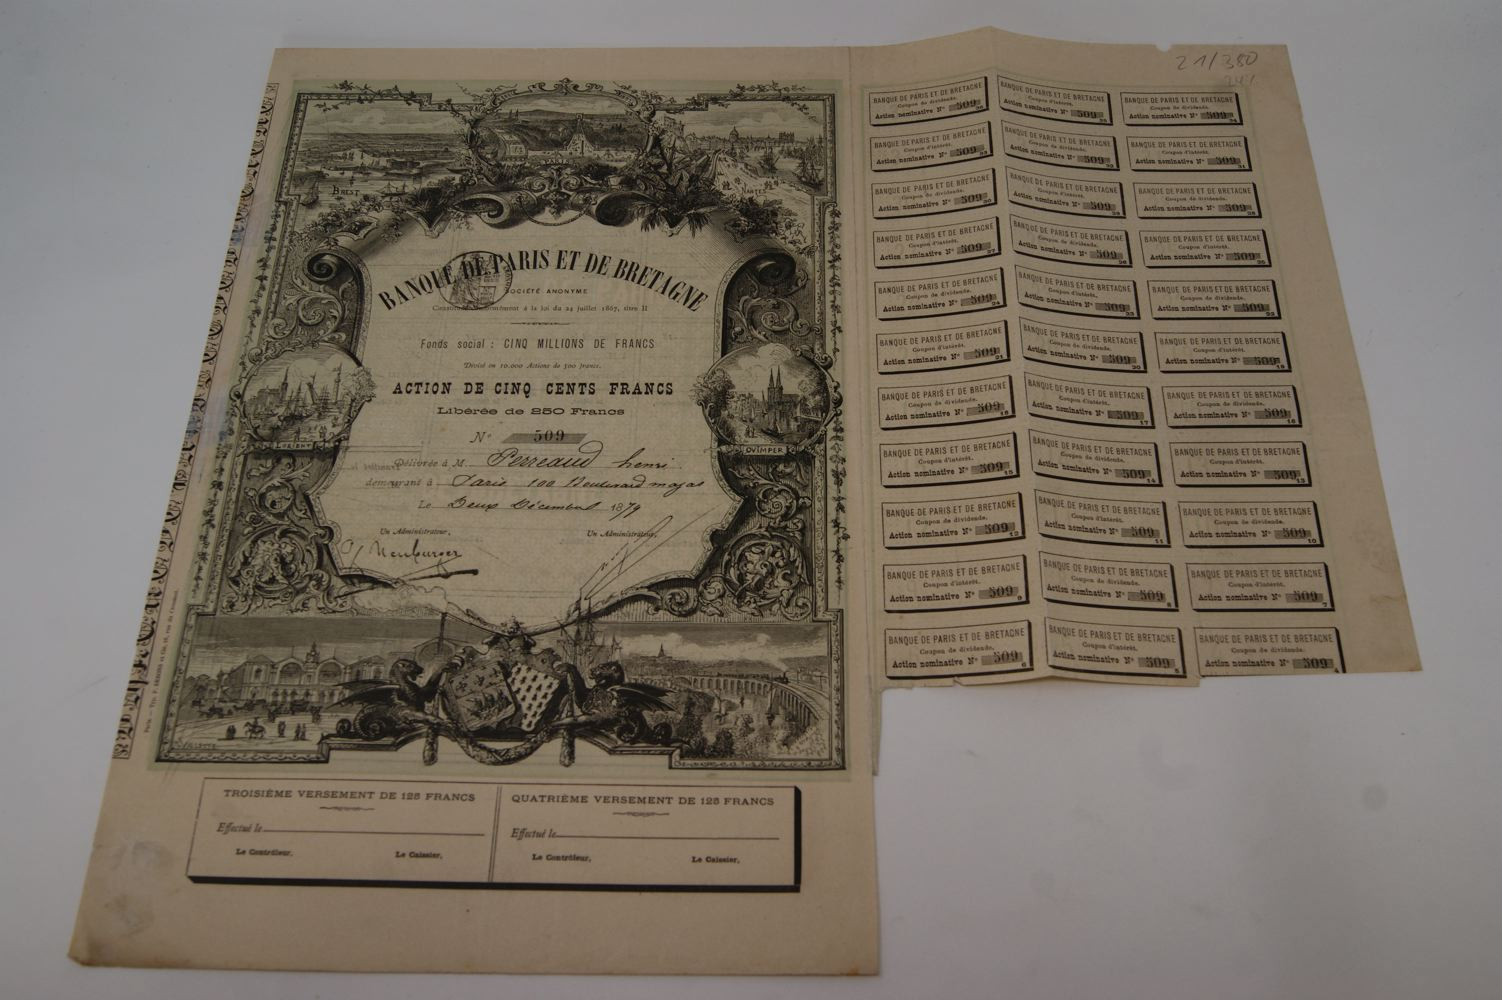 21/380
PARIS
BREST
NANTES
BANQUE DE PARIS ET DE BRETAGNE
SOCIÉTÉ ANONYME
à la loi du 24 juillet 1867, titre II
Fonds social : CINQ MILLIONS DE FRANCS
Divisé en 10.000 Actions de 500 francs.
ACTION DE CINQ CENTS FRANCS
Libérée de 250 Francs
LORIENT
QUIMPER
N° 509
Délivrée à M. Perreaud henri
demeurant à Paris 100 Boulevard mazas
Le Deux Décembre 1879
Un Administrateur, Un Administrateur,
Neuburger
TROISIÈME VERSEMENT DE 125 FRANCS
Effectué le
Le Contrôleur, Le Caissier,
QUATRIÈME VERSEMENT DE 125 FRANCS
Effectué le
Le Contrôleur, Le Caissier,
BANQUE DE PARIS ET DE BRETAGNE
Coupon de dividende.
Action nominative N° 509
36
BANQUE DE PARIS ET DE BRETAGNE
Coupon d'intérêt.
Action nominative N° 509
35
BANQUE DE PARIS ET DE BRETAGNE
Coupon de dividende.
Action nominative N° 509
34
BANQUE DE PARIS ET DE BRETAGNE
Coupon d'intérêt.
Action nominative N° 509
33
BANQUE DE PARIS ET DE BRETAGNE
Coupon de dividende.
Action nominative N° 509
32
BANQUE DE PARIS ET DE BRETAGNE
Coupon d'intérêt.
Action nominative N° 509
31
BANQUE DE PARIS ET DE BRETAGNE
Coupon de dividende.
Action nominative N° 509
30
BANQUE DE PARIS ET DE BRETAGNE
Coupon d'intérêt.
Action nominative N° 509
29
BANQUE DE PARIS ET DE BRETAGNE
Coupon de dividende.
Action nominative N° 509
28
BANQUE DE PARIS ET DE BRETAGNE
Coupon d'intérêt.
Action nominative N° 509
27
BANQUE DE PARIS ET DE BRETAGNE
Coupon de dividende.
Action nominative N° 509
26
BANQUE DE PARIS ET DE BRETAGNE
Coupon d'intérêt.
Action nominative N° 509
25
BANQUE DE PARIS ET DE BRETAGNE
Coupon de dividende.
Action nominative N° 509
24
BANQUE DE PARIS ET DE BRETAGNE
Coupon d'intérêt.
Action nominative N° 509
23
BANQUE DE PARIS ET DE BRETAGNE
Coupon de dividende.
Action nominative N° 509
22
BANQUE DE PARIS ET DE BRETAGNE
Coupon d'intérêt.
Action nominative N° 509
21
BANQUE DE PARIS ET DE BRETAGNE
Coupon de dividende.
Action nominative N° 509
20
BANQUE DE PARIS ET DE BRETAGNE
Coupon d'intérêt.
Action nominative N° 509
19
BANQUE DE PARIS ET DE BRETAGNE
Coupon de dividende.
Action nominative N° 509
18
BANQUE DE PARIS ET DE BRETAGNE
Coupon d'intérêt.
Action nominative N° 509
17
BANQUE DE PARIS ET DE BRETAGNE
Coupon de dividende.
Action nominative N° 509
16
BANQUE DE PARIS ET DE BRETAGNE
Coupon d'intérêt.
Action nominative N° 509
15
BANQUE DE PARIS ET DE BRETAGNE
Coupon de dividende.
Action nominative N° 509
14
BANQUE DE PARIS ET DE BRETAGNE
Coupon d'intérêt.
Action nominative N° 509
13
BANQUE DE PARIS ET DE BRETAGNE
Coupon de dividende.
Action nominative N° 509
12
BANQUE DE PARIS ET DE BRETAGNE
Coupon d'intérêt.
Action nominative N° 509
11
BANQUE DE PARIS ET DE BRETAGNE
Coupon de dividende.
Action nominative N° 509
10
BANQUE DE PARIS ET DE BRETAGNE
Coupon d'intérêt.
Action nominative N° 509
9
BANQUE DE PARIS ET DE BRETAGNE
Coupon de dividende.
Action nominative N° 509
8
BANQUE DE PARIS ET DE BRETAGNE
Coupon d'intérêt.
Action nominative N° 509
7
BANQUE DE PARIS ET DE BRETAGNE
Coupon de dividende.
Action nominative N° 509
6
BANQUE DE PARIS ET DE BRETAGNE
Coupon d'intérêt.
Action nominative N° 509
5
BANQUE DE PARIS ET DE BRETAGNE
Coupon de dividende.
Action nominative N° 509
4